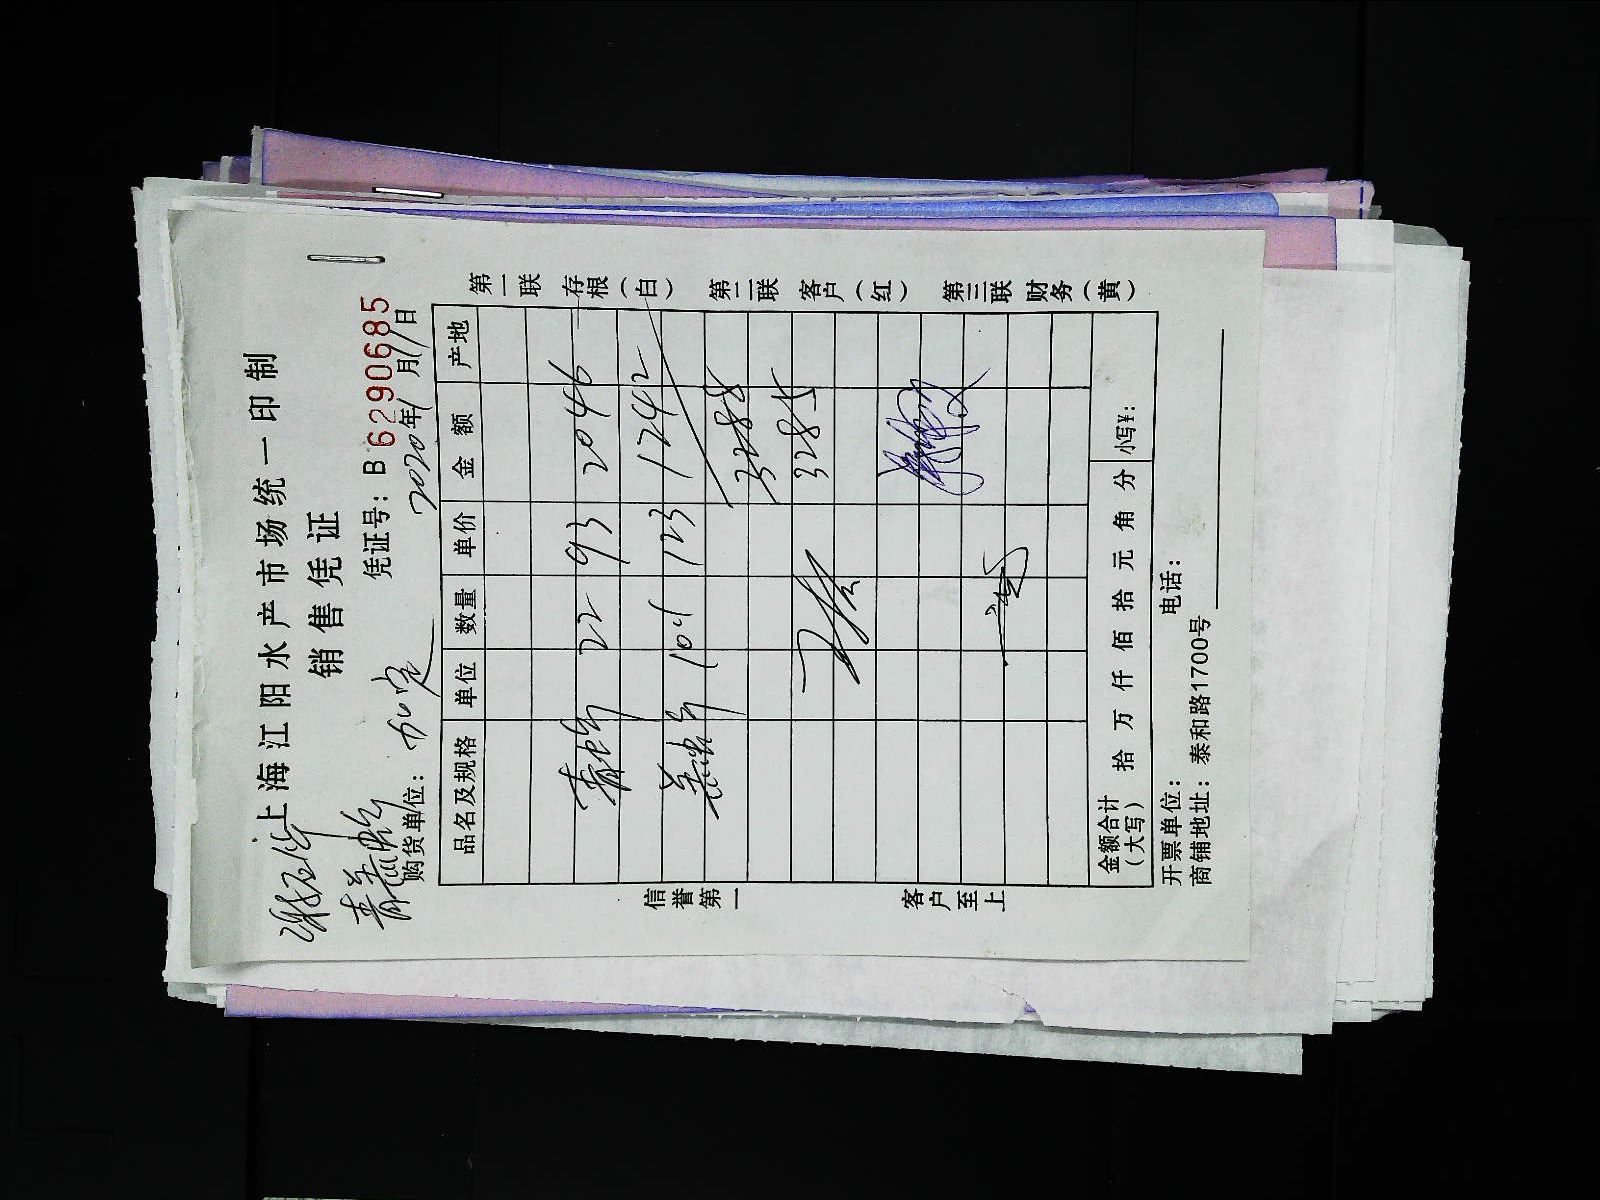 上海江阳水产市场统一印制
销售凭证
凭证号：B 6290685
购货单位：
2020年1月11日
品名及规格 单位 数量 单价 金额 产地
22 93 2046
10.1 123 1242
3288
3285
金额合计（大写） 拾 万 仟 佰 拾 元 角 分 小写¥：
开票单位： 电话：
商铺地址：泰和路1700号
第一联 存根（白） 第二联 客户（红） 第三联 财务（黄）
信誉第一 客户至上